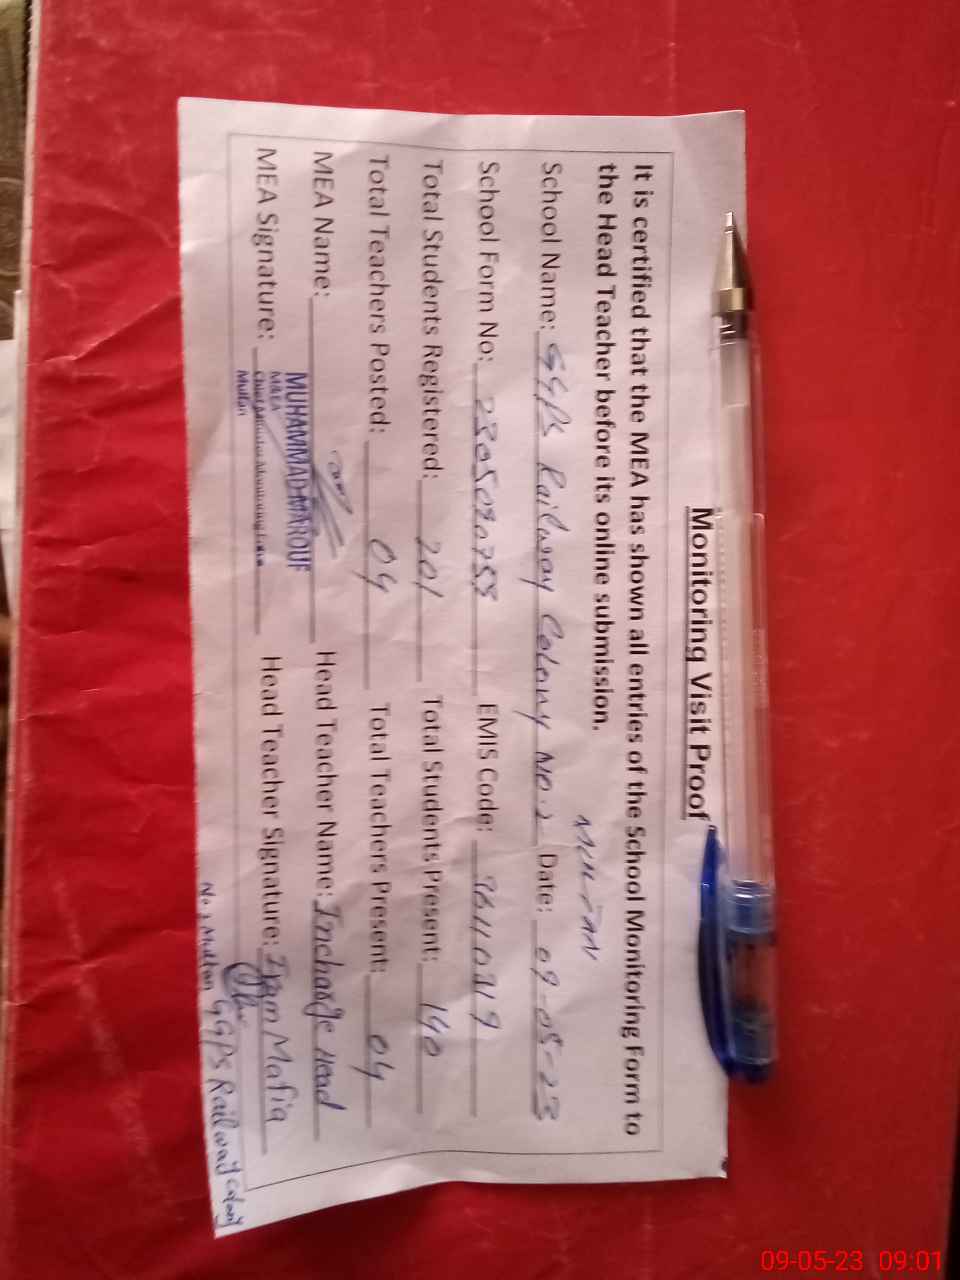 Monitoring Visit Proof
It is certified that the MEA has shown all entries of the School Monitoring Form to
the Head Teacher before its online submission.
MULTAN
School Name: GGPS Railway Colony No.2 Date: 09-05-23
School Form No: EMIS Code:
Total Students Registered: 201 Total Students Present: 140
Total Teachers Posted: 04 Total Teachers Present: 04
MEA Name: Head Teacher Name: Incharge Head
MUHAMMAD MAROUF
MEA
MEA Signature: Head Teacher Signature:
Multan
GGPS Railway Colony
No 2 Multan
09-05-23 09:01